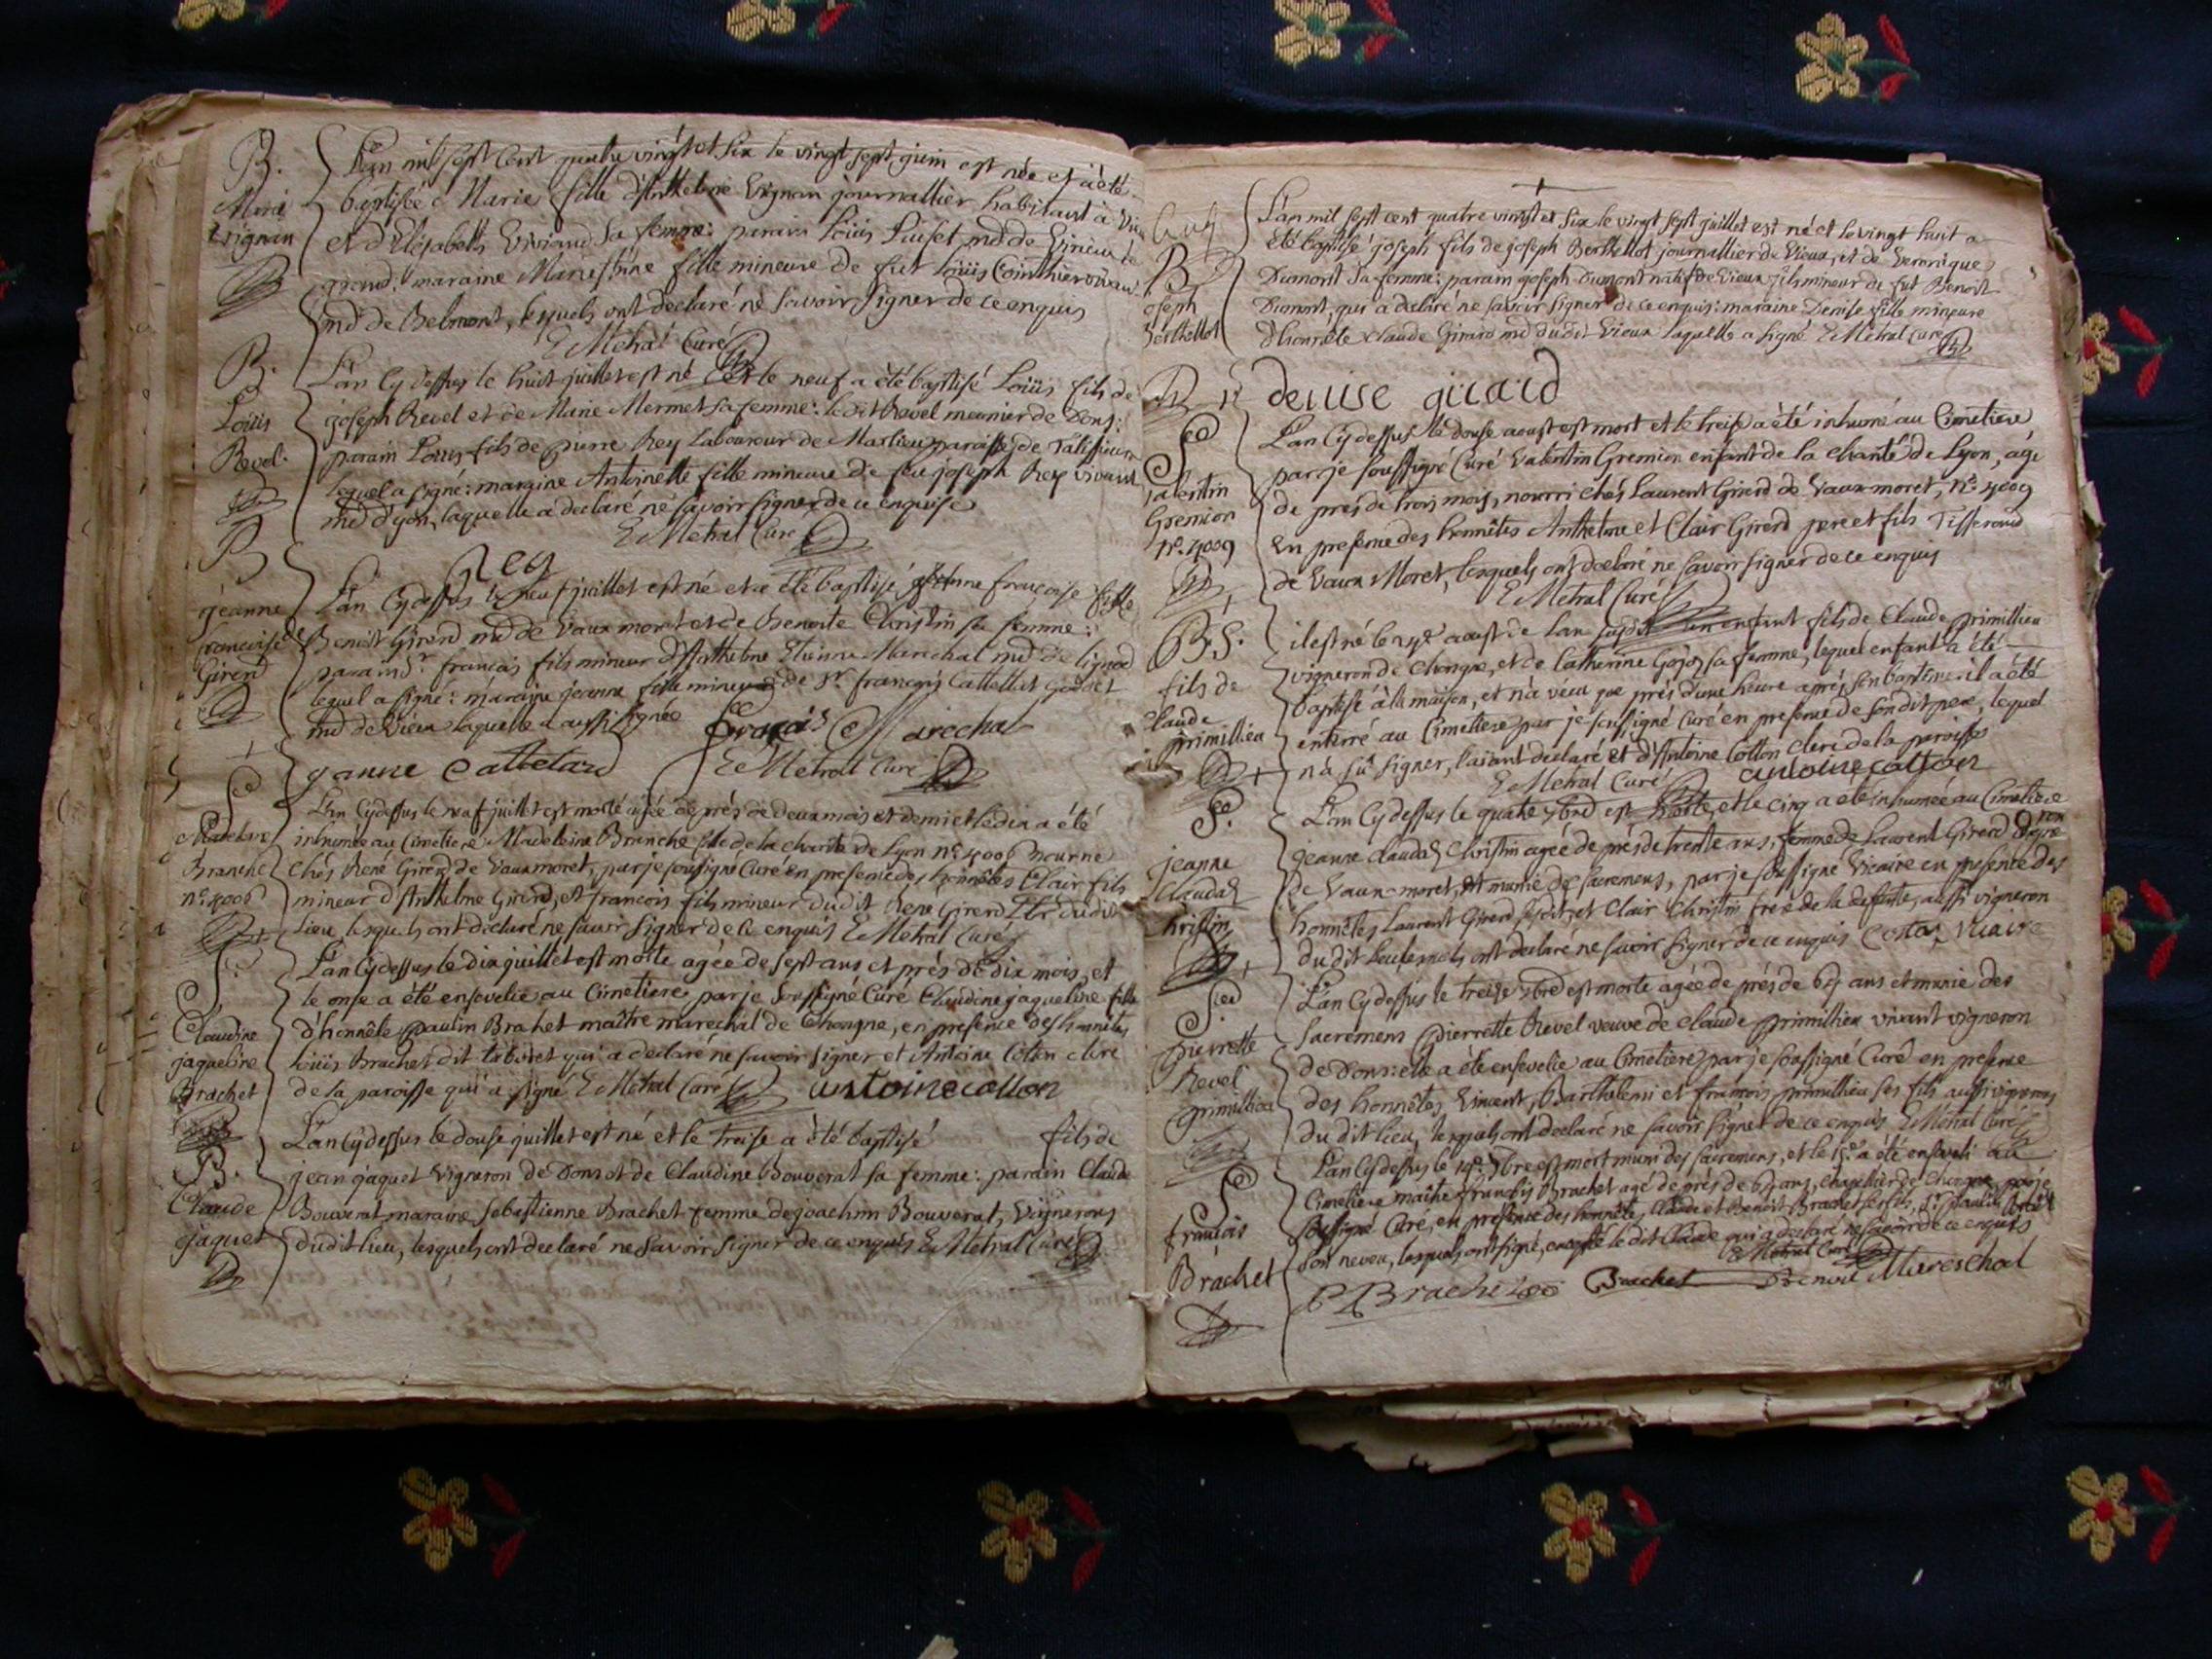 B.
Marie
Vignan
L'an mil sept cent quatre vingt et six le vingt sept juin est née et a été
baptisée Marie fille d'Anthelme Vignan journallier habitant à
et d'Elizabeth Viviand sa femme: parain Loüis md de Virieu le
grand, maraine Mariestine fille mineure de fut Loüis vivant
md de Belmont, lesquels ont declaré ne savoir signer de ce enquis
E Metral Curé
B.
Loüis
Revel.
L'an cy dessus le huit juillet est né et le neuf a été baptisé Loüis fils de
joseph Revel et de Marie Mermet sa femme: le dit Revel meunier de Dons:
parain Loüis fils de pierre Rey Laboureur de Marlieu paroisse de Talissieux
lequel a signé: maraine Antoinette fille mineure de feu joseph Rey vivant
md d'yon, laquelle a declaré ne savoir signer de ce enquise
E Metral Curé
Rey
B
jeanne
françoise
Girerd
L'an cy dessus le neuf juillet est né et a été baptisé jeanne françoise fille
de Benoit Girerd md de Vaux moret et de Benoite Christin sa femme:
parain Sr françois fils mineur d'Anthelme Etienne Marechal md de lignod
lequel a signé: maraine jeanne fille mineure de Sr françois Cattelat
md de Vieu laquelle a aussi signée françois Marechal
janne Cattelard E Metral Curé
S
Madelaine
Branche
n° 4006
L'an cy dessus le neuf juillet est morte agée de près de deux mois et demi et le dix a été
inhumée au Cimetiere Madeleine Branche fille de la charité de Lyon n° 4006 nourrie
chés René Girerd de Vaux moret, par je sousigné Curé en presence des honnêtes Clair fils
mineur d'Anthelme Girerd, et françois fils mineur du dit René Girerd du dit
Lieu, lesquels ont declaré ne savoir signer de ce enquis E Metral Curé
S.
Claudine
jaqueline
Brachet
L'an cy dessus le dix juillet est morte agée de sept ans et près de dix mois, et
le onse a été ensevelie au Cimetiere par je soussigné Curé Claudine jaqueline fille
d'honnête paulin Brachet maître marechal de Chongne, en presence des honnêtes
Loüis Brachet dit qui a declaré ne savoir signer et Antoine Cotton clerc
de la paroisse qui a signé E Metral Curé antoine cotton
B.
Claude
jaquet
L'an cy dessus le douse juillet est né et le treise a été baptisé fils de
jean jaquet vigneron de Dons et de Claudine Bouverat sa femme: parain Claude
Bouverat maraine Sebastienne Brachet femme de joachim Bouverat, vignerons
du dit lieu, lesquels ont declaré ne savoir signer de ce enquis E Metral Curé
B
joseph
Berthellot
L'an mil sept cent quatre vingt et six le vingt sept juillet est né et le vingt huit a
été baptisé joseph fils de joseph Berthellot journallier de Vieux, et de Veronique
Dumont sa femme: parain joseph Dumont natif de Vieux fils mineur de fut Benoit
Dumont, qui a declaré ne savoir signer de ce enquis: maraine Denise fille mineure
d'honnête Claude Girard md du dit Vieux laquelle a signé E Metral Curé
denise girard
S
valentin
Gremion
n° 4009
L'an cy dessus le douse aoust est mort et le treise a été inhumé au Cimetiere
par je soussigné Curé Valentin Gremion enfant de la charité de Lyon, agé
de près de trois mois, nourri chés Laurent Girerd de Vaux moret, n° 4009
en presence des honnêtes Anthelme et Clair Girerd pere et fils Tisserand
de Vaux Moret, lesquels ont declaré ne savoir signer de ce enquis
E Metral Curé
B. S.
fils de
Claude
primillieu
il est né le aoust de l'an susdit un enfant fils de Claude primillieu
vigneron de Chongne, et de Catherine Gojoz sa femme, lequel enfant a été
baptisé à la maison, et n'a vécu que près d'une heure après son baptême: il a été
enterré au Cimetiere par je soussigné Curé en presence de son dit pere, lequel
n'a sû signer, l'aiant declaré et d'Antoine Cotton clerc de la paroisse
E Metral Curé antoine cotton
S.
jeanne
Claudaz
christin
L'an cy dessus le quatre 7bre est morte, et le cinq a été inhumée au Cimetiere
jeanne Claudaz Christin agée de près de trente ans, femme de Laurent Girerd
de Vaux-moret, et munie des sacremens, par je soussigné Vicaire en presence des
honnêtes Laurent Girerd susdit, et Clair Christin frere de la defunte, aussi vigneron
du dit lieu lesquels ont declaré ne savoir signer de ce enquis Costaz Vicaire
S.
pierrette
Revel
primillieu
L'an cy dessus le treize 7bre est morte agée de près de 64 ans et munie des
sacremens pierrette Revel veuve de Claude primillieu vivant vigneron
de Dons: elle a été ensevelie au Cimetiere par je soussigné Curé en presence
des honnêtes Vincent, Barthelemi et françois primillieu ses fils aussi vignerons
du dit lieu, lesquels ont declaré ne savoir signer de ce enquis E Metral Curé
S
françois
Brachet
L'an cy dessus le 14e 7bre est mort muni des sacremens, et le 15e a été enseveli au
Cimetiere maître françois Brachet agé de près de ans, de Chongne, par je
soussigné Curé, en presence des honnêtes Claude et Benoit Brachet ses fils, et Sr paulin Brachet
son neveu, lesquels ont signé, excepté le dit Claude qui a declaré ne savoir de ce enquis
E Metral Curé
P Brachet Brachet Benoit Mareschal